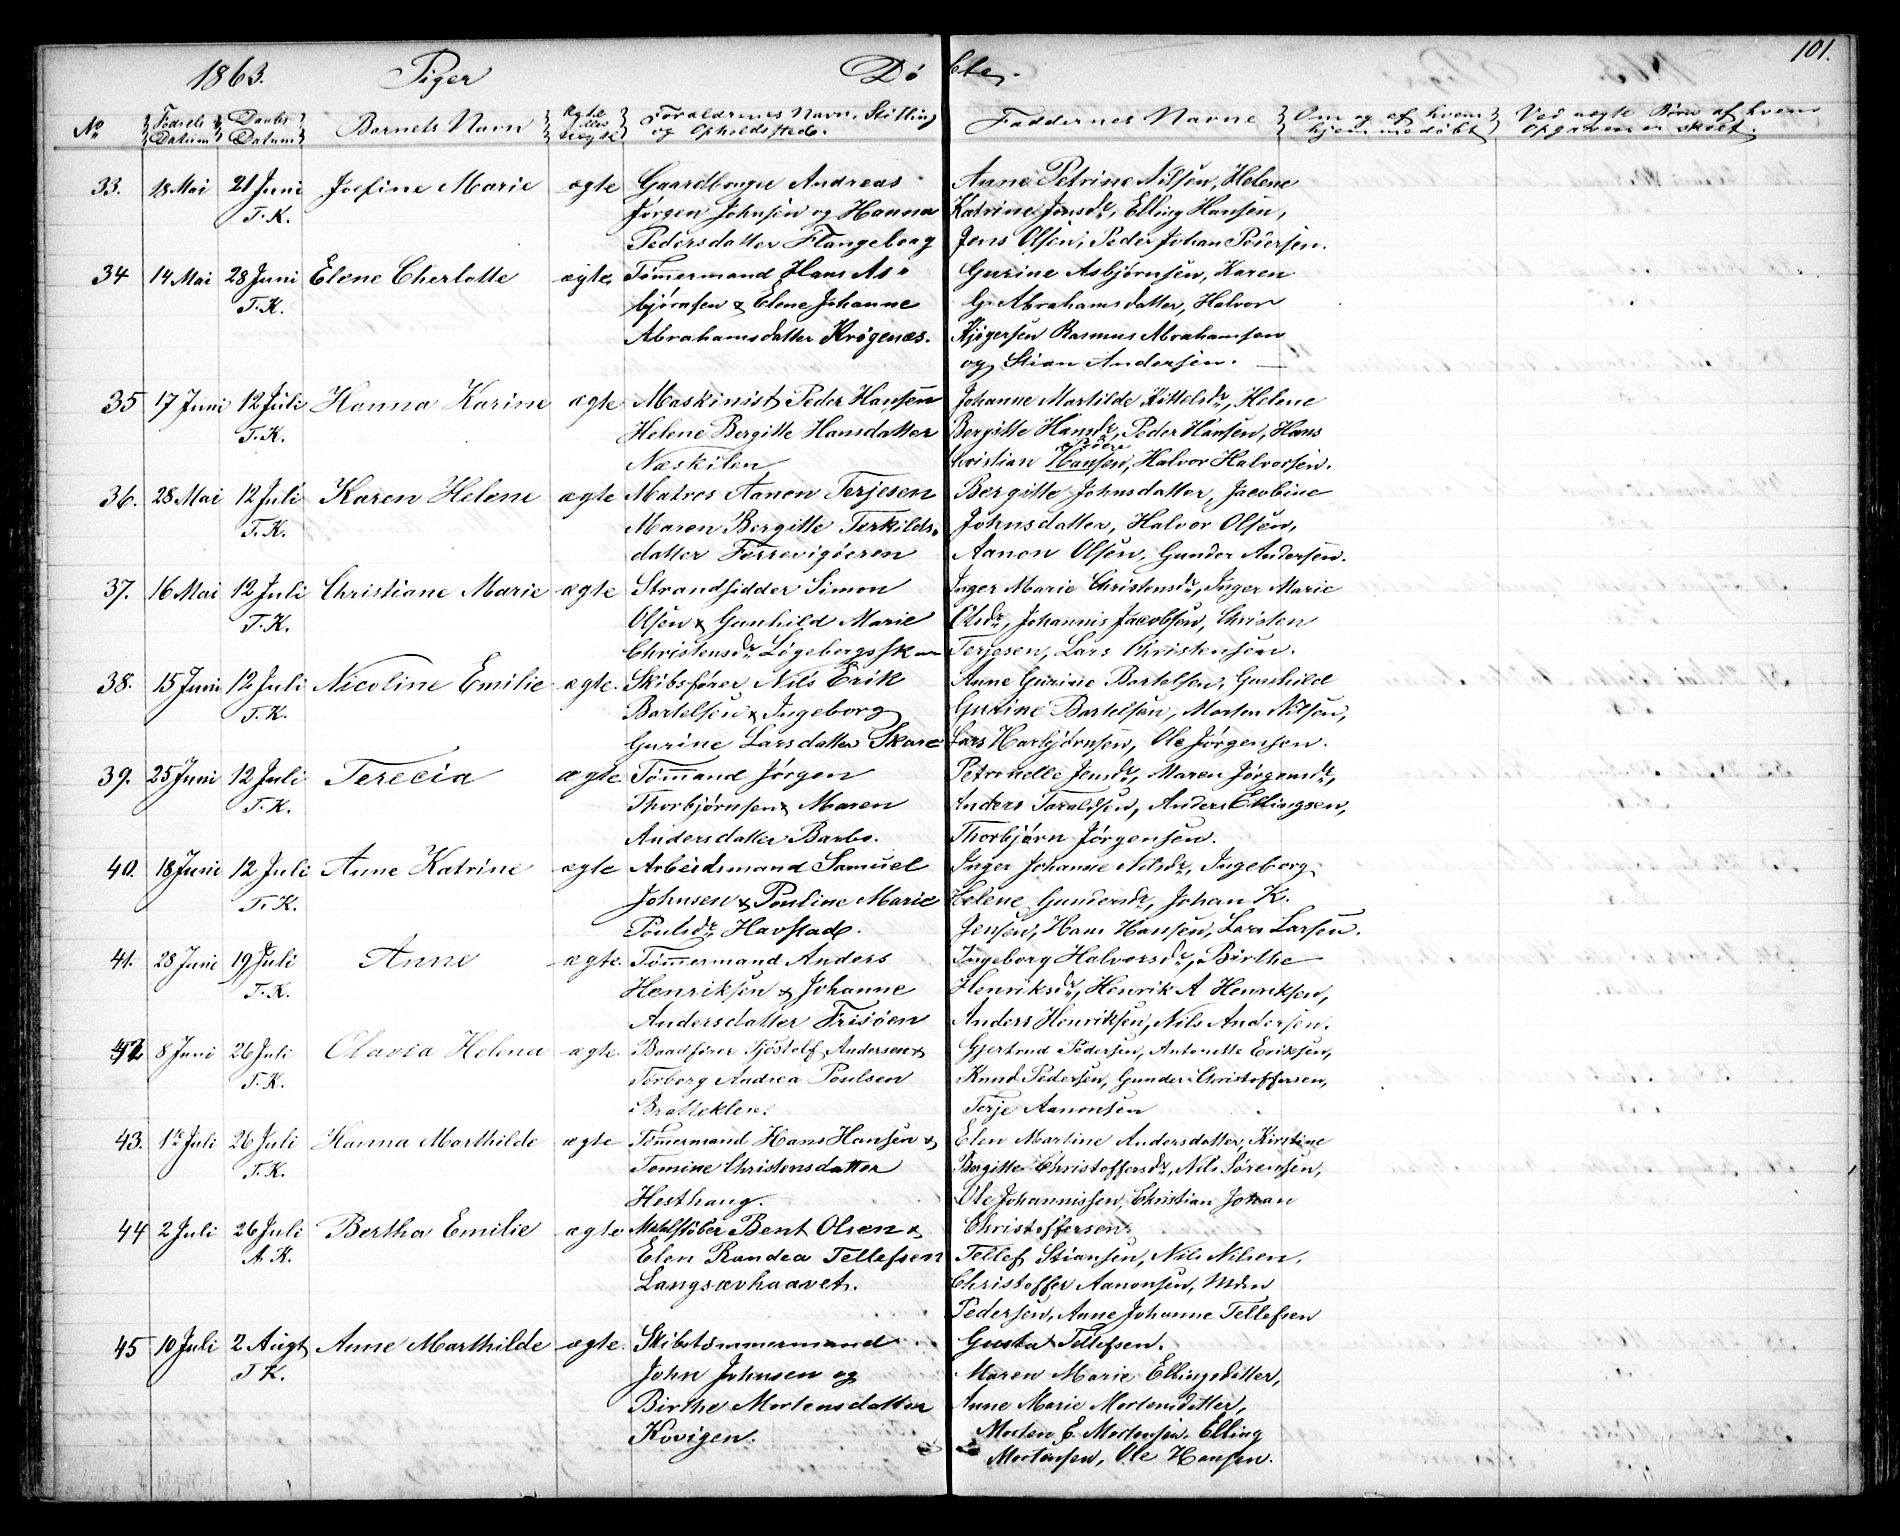 101.
1863. Piger Døbte.
No Fødsels Datum Daabs Datum Barnets Navn Ægte eller Uægte Forældrenes Navn, Stilling og Opholdssted. Faddernes Navne Om og af hvem hjemmedøbt Ved uægte Børn af hvem Opgaven er skeet.
33. 18 Mai 21 Juni Josefine Marie ægte Gaardbruger Andreas Anne Petrine Nilsen, Helene
T. K. Jørgen Johnsen og Hanna Katrine Jensdr, Elling Hansen,
Pedersdatter Flangeborg Jens Olsen, Peder Johan Pedersen.
34 14 Mai 28 Juni Elene Cherlotte ægte Tømmermand Hans As- Gurine Asbjørnsen, Karen
T. K. bjørnsen & Elene Johanne G. Abrahamsdatter, Halvor
Abrahamsdatter Krøgenæs. Kjøgersen Rasmus Abrahamsen
og Stian Andersen.
35 17 Juni 12 Juli Hanna Karine ægte Maskinist Peder Hansen Johanne Martilde Kittelsdr, Helene
T. K. Helene Bergitte Hansdatter Bergitte Hansdr, Peder Hansen, Hans
Næskilen Christian Hansen, Halvor Halvorsen.
36. 28 Mai 12 Juli Karen Helene ægte Matros Aanon Terjesen Bergitte Johnsdatter, Jacobine
T. K. Maren Bergitte Terkilds- Johnsdatter, Halvor Olsen,
datter Færrevigøeren Aanon Olsen, Gunder Andersen.
37. 16 Mai 12 Juli Christiane Marie ægte Strandsidder Simon Inger Marie Christensdr, Inger Marie
T. K. Olsen & Gunhild Marie Olsdr, Johannis Jacobsen, Christen
Christensdr Løgebergssk Terjesen, Lars Christensen.
38. 15 Juni 12 Juli Nicoline Emilie ægte. Skibsfører Nils Erik Anne Gurine Bartelsen, Gunhild
T. K. Bartelsen & Ingeborg Gurine Bartelsen, Morten Nilsen,
Gurine Larsdatter Skare Lars Harbjørnsen, Ole Jørgensen.
39. 25 Juni 12 Juli Terecia ægte Tømmand Jørgen Petronelle Jensdr, Maren Jørgensdr,
T. K. Thorbjørnsen & Maren Anders Taraldsen, Anders Ellingsen,
Andersdatter Barbo. Thorbjørn Jørgensen.
40. 18 Juni 12 Juli Anne Katrine ægte Arbeidsmand Samuel Inger Johanne Nilsdr, Ingeborg
T. K. Johnsen & Pouline Marie Helene Gundersdr, Johan K.
Poulsdr Havstad. Jensen, Hans Hansen, Lars Larsen.
41. 28 Juni 19 Juli Anne ægte. Tømmermand Anders Ingeborg Halvorsdr, Birthe
T. K. Henriksen & Johanne Henriksdr, Henrik A Henriksen,
Andersdatter Frisøen Anders Henriksen, Nils Andersen.
42 8 Juni 26 Juli Olavia Helena ægte Baadfører Tjøstolf Andersen & Gjertrud Pedersen, Antonette Eriksen,
T. K. Torborg Andrea Poulsen Knud Pedersen, Gunder Christoffersen,
Bratteklev. Terje Aanonsen
43. 1te Juli 26 Juli Hanna Marthilde ægte Tømmermand Hans Hansen & Elen Martine Andersdatter, Kirstine
T. K. Tomine Christensdatter Bergitte Christoffersdr, Nils Sørensen,
Hesthaug. Ole Johannissen, Christian Johan
44 2 Juli 26 Juli Bertha Emilie ægte Metalstøber Bent Olsen & Christoffersen.
A. K. Elen Randea Tellefsen Tellef Stiansen, Nils Nilsen,
Langsævhaavet. Christoffer Aanonsen,
Pedersen, Anne Johanne Tellefsen
45 10 Juli 2 Augt Anne Marthilde ægte. Skibstømmermand Gusta Tellefsen.
T K. John Johnsen og Maren Marie Ellingsdatter,
Birthe Mortensdatter Anne Marie Mortensdatter,
Kovigen. Morten E. Mortensen, Elling
Mortensen, Ole Hansen.